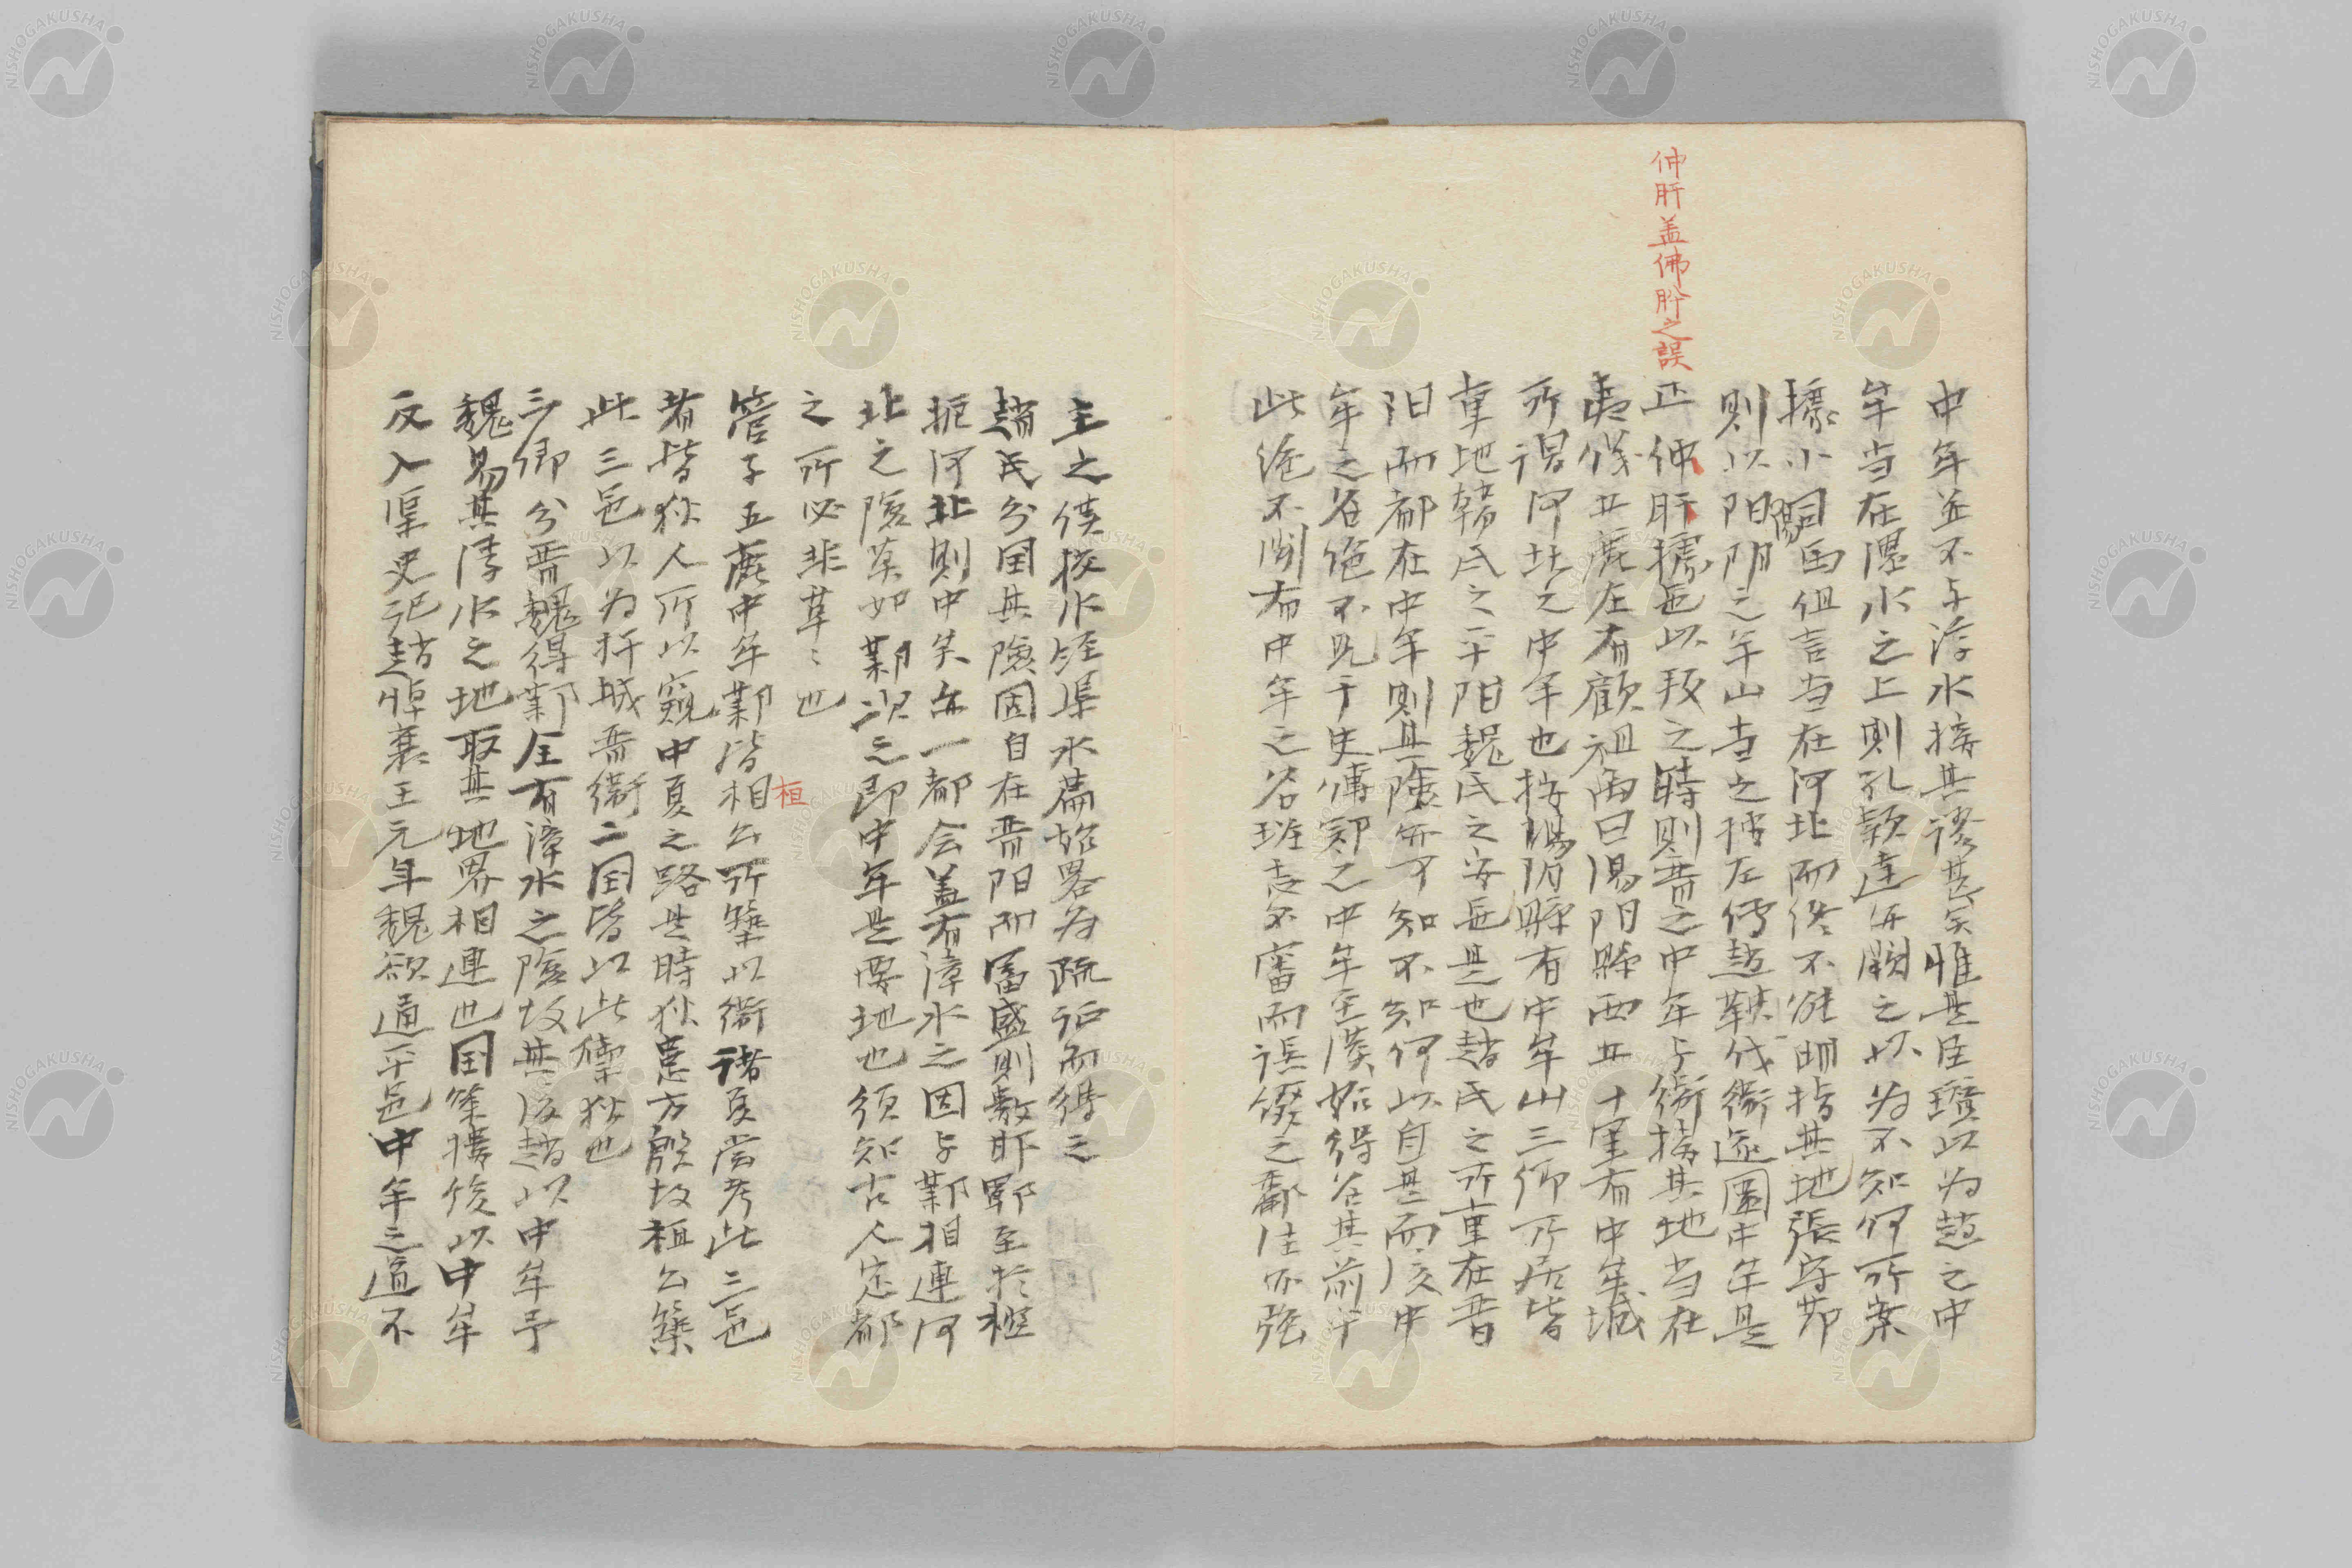 仲肝盖佛肸之誤
中牟並不与漳水接其謬甚矣惟是臣瓚以為趙之中
牟当在漯水之上則孔穎達亦闕之以為不知何所案
據小司馬但言当在河北而終不能明指其地張守節
則以阳阴之牟山当之按左传趙鞅伐衛遂圍中牟是
正仲肝據邑以叛之時則晋之中牟与衛接其地当在
夷儀五鹿左右顧祖禹曰湯阴縣西五十里有中牟城
所谓河北之中牟也按湯阴縣有中牟山三卿所居皆
重地韓氏之平阳魏氏之安邑是也趙氏之所重在晋
阳而都在中牟則其險亦可知不知何以自是而後中
牟之名绝不見于史傳鄭之中牟至漢始得名其前乎
此绝不闻有中牟之名班志不審而误缀之酈注亦强
主之僕校水経渠水篇始畧為疏证而得之
趙氏分国其險固自在晋阳而富盛則數邯鄲至於控
扼河北則中牟亦一都会盖有漳水之固与鄴相連河
北之險莫如鄴次之即中牟是要地也須知古人定都
之所必非草〻也
管子五鹿中牟鄴皆相公所築以衛诸夏嘗考此三邑
桓
者皆狄人所以窺中夏之路是時狄患方殷故桓公築
此三邑以为扞城晋衛二国皆以此禦狄也
三卿分晋魏得鄴全有漳水之險故其後趙以中牟予
魏易其漳水之地取其地界相連也国策樓緩以中牟
反入梁史记趙悼襄王元年魏欲通平邑中牟之道不